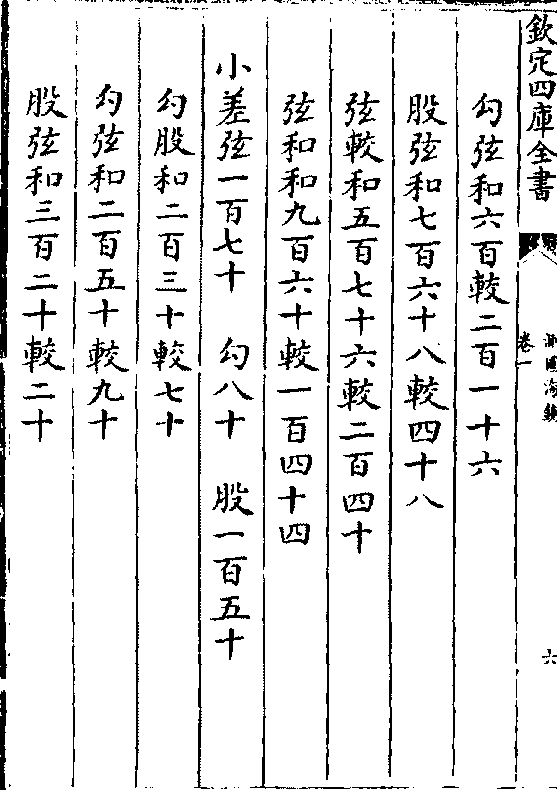 欽定四庫全書
測圓海鏡
卷一
六
勾弦和六百較二百一十六
股弦和七百六十八較四十八
弦較和五百七十六較二百四十
弦和和九百六十較一百四十四
小差弦一百七十 勾八十 股一百五十
勾股和二百三十較七十
勾弦和二百五十較九十
股弦和三百二十較二十